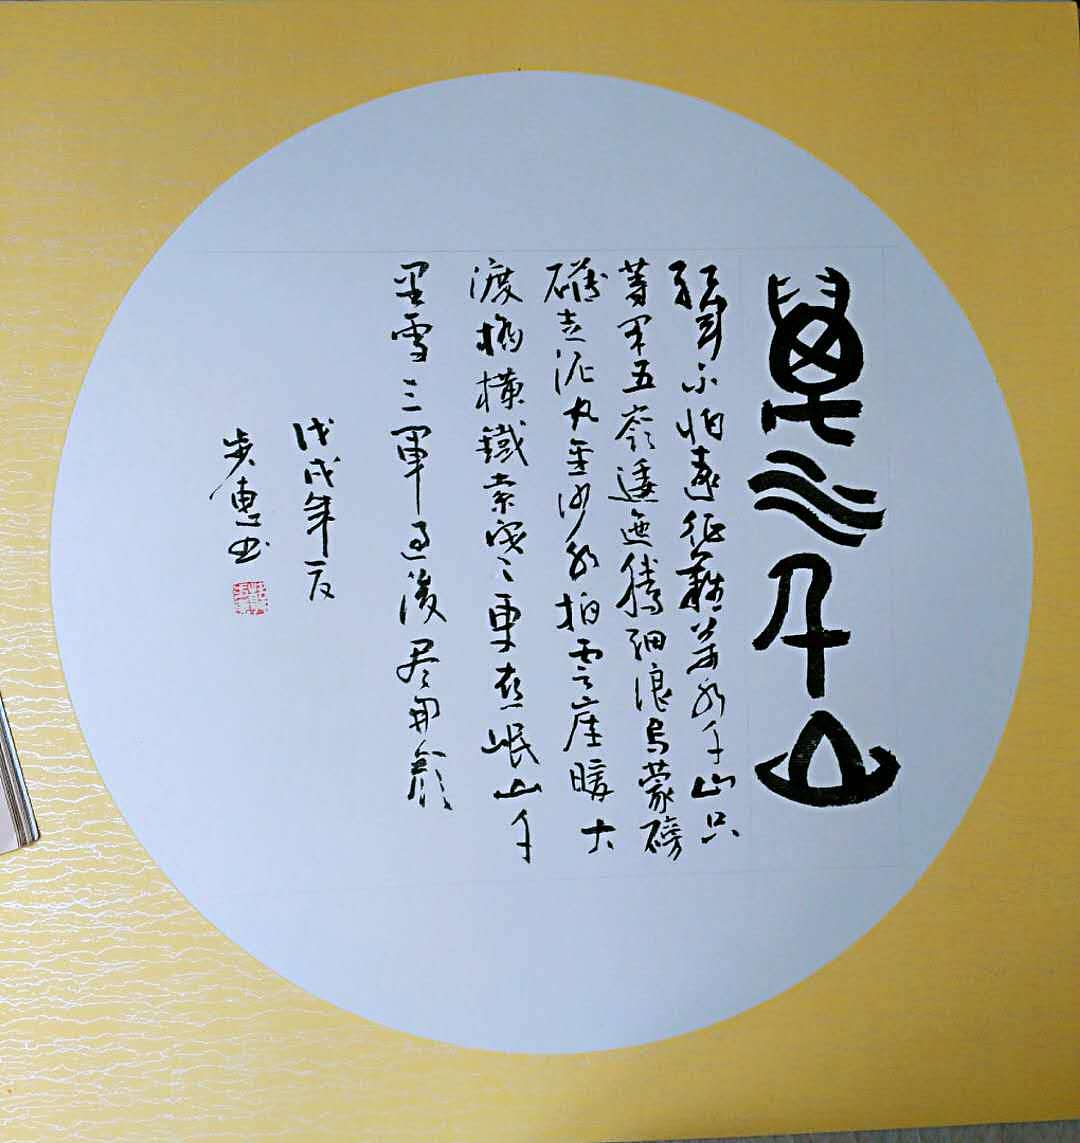 萬水千山
紅軍不怕遠征難萬水千山只
等閑五嶺逶迤騰細浪烏蒙磅
礴走泥丸金沙水拍雲崖暖大
渡橋橫鐵索寒更喜岷山千
里雪三軍過後尽開顏
戊戌年夏
步惠书